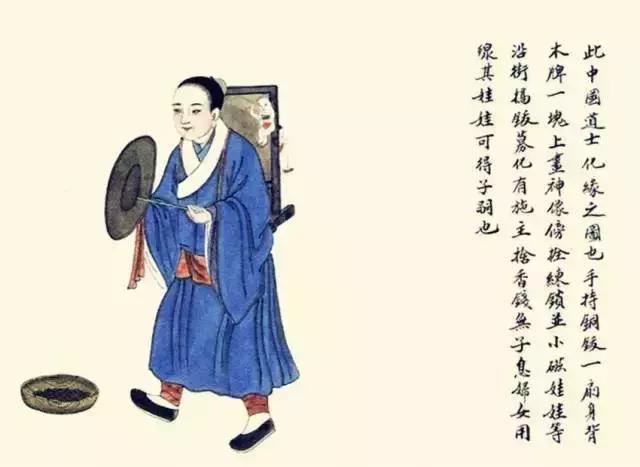 此中國道士化緣之圖也手持銅鈸一扇身背
木牌一塊上畫神像傍拴練鎖並小磁娃娃等
沿街搧鈸募化有施主捨香錢無子息婦女用
線其娃娃可得子嗣也